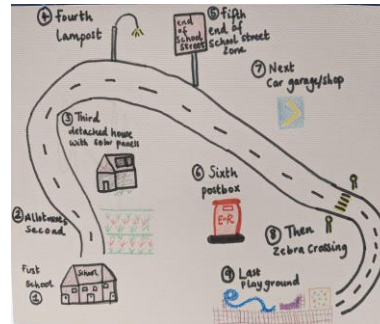 ④ Fourth
Lampost
end
of
School
street
⑤ fifth
end of
school street
zone
⑦ Next
Car garage/shop
③ Third
detached house
with solar panels
⑥ Sixth
postbox
E-R
② Allotments
Second
⑧ Then
Zebra Crossing
First
School
①
School
⑨ Last
playground